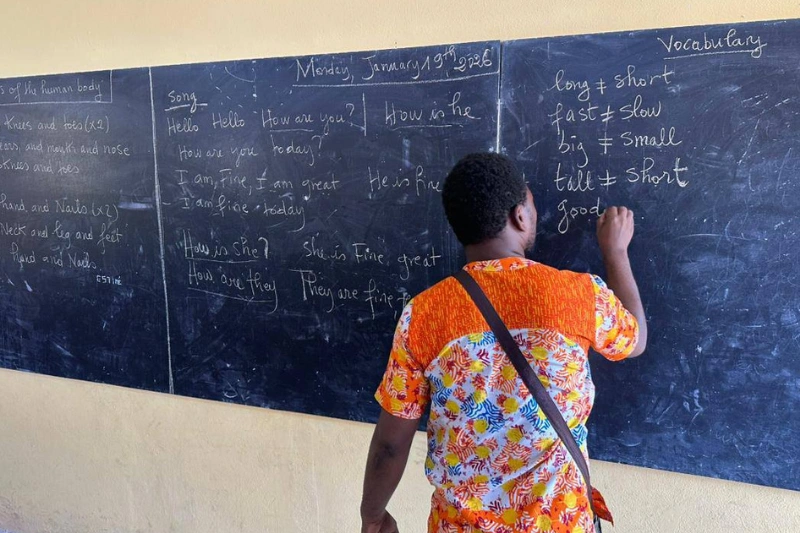 s of the human body
Knees and toes (x2)
ears, and mouth and nose
Knees and toes
hand and Nails (x2)
Neck and leg and feet
Hand and Nails
Monday, January 19th, 2026
Song
Hello Hello How are you? How is he
How are you today?
I am, Fine, I am great He is fine
I am fine today
How is she? She is Fine, great
How are they They are fine,
Vocabulary
long ≠ short
fast ≠ slow
big ≠ small
tall ≠ short
good